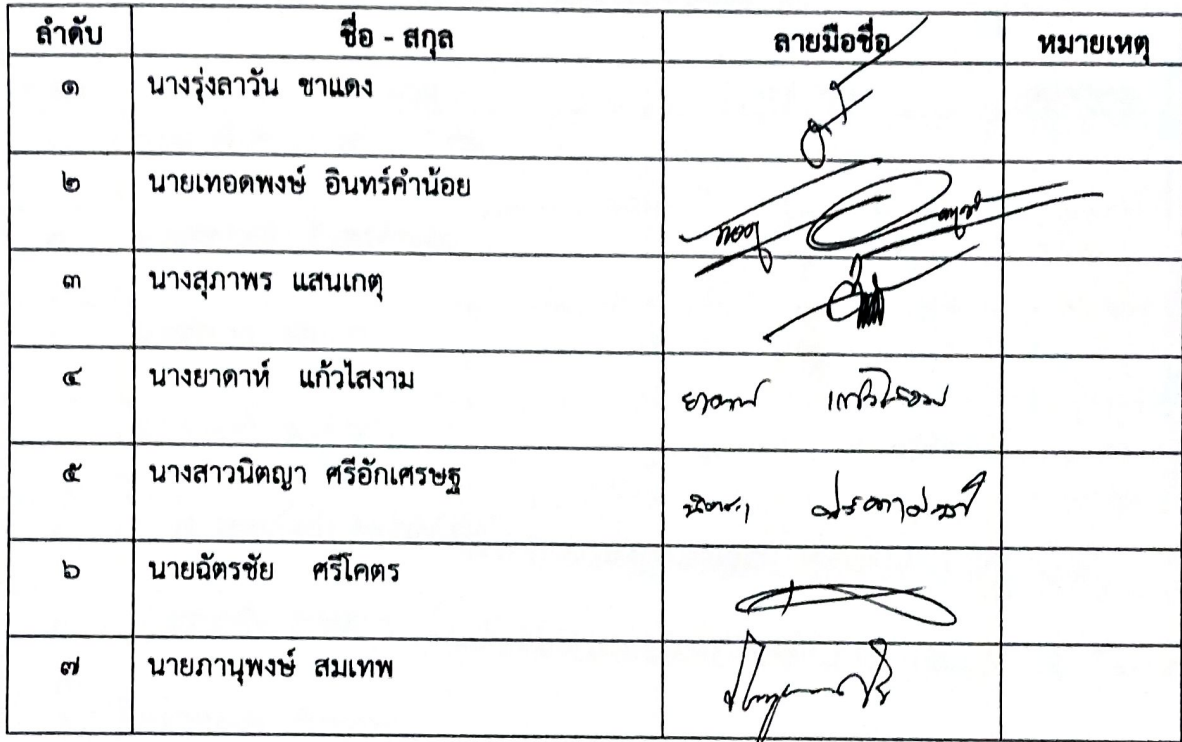 ลำดับ ชื่อ - สกุล ลายมือชื่อ หมายเหตุ
๑ นางรุ่งลาวัน ชาแดง
๒ นายเทอดพงษ์ อินทร์คำน้อย
๓ นางสุภาพร แสนเกตุ
๔ นางยาดาห์ แก้วไสงาม
๕ นางสาวนิตญา ศรีอักเศรษฐ
๖ นายฉัตรชัย ศรีโคตร
๗ นายภานุพงษ์ สมเทพ